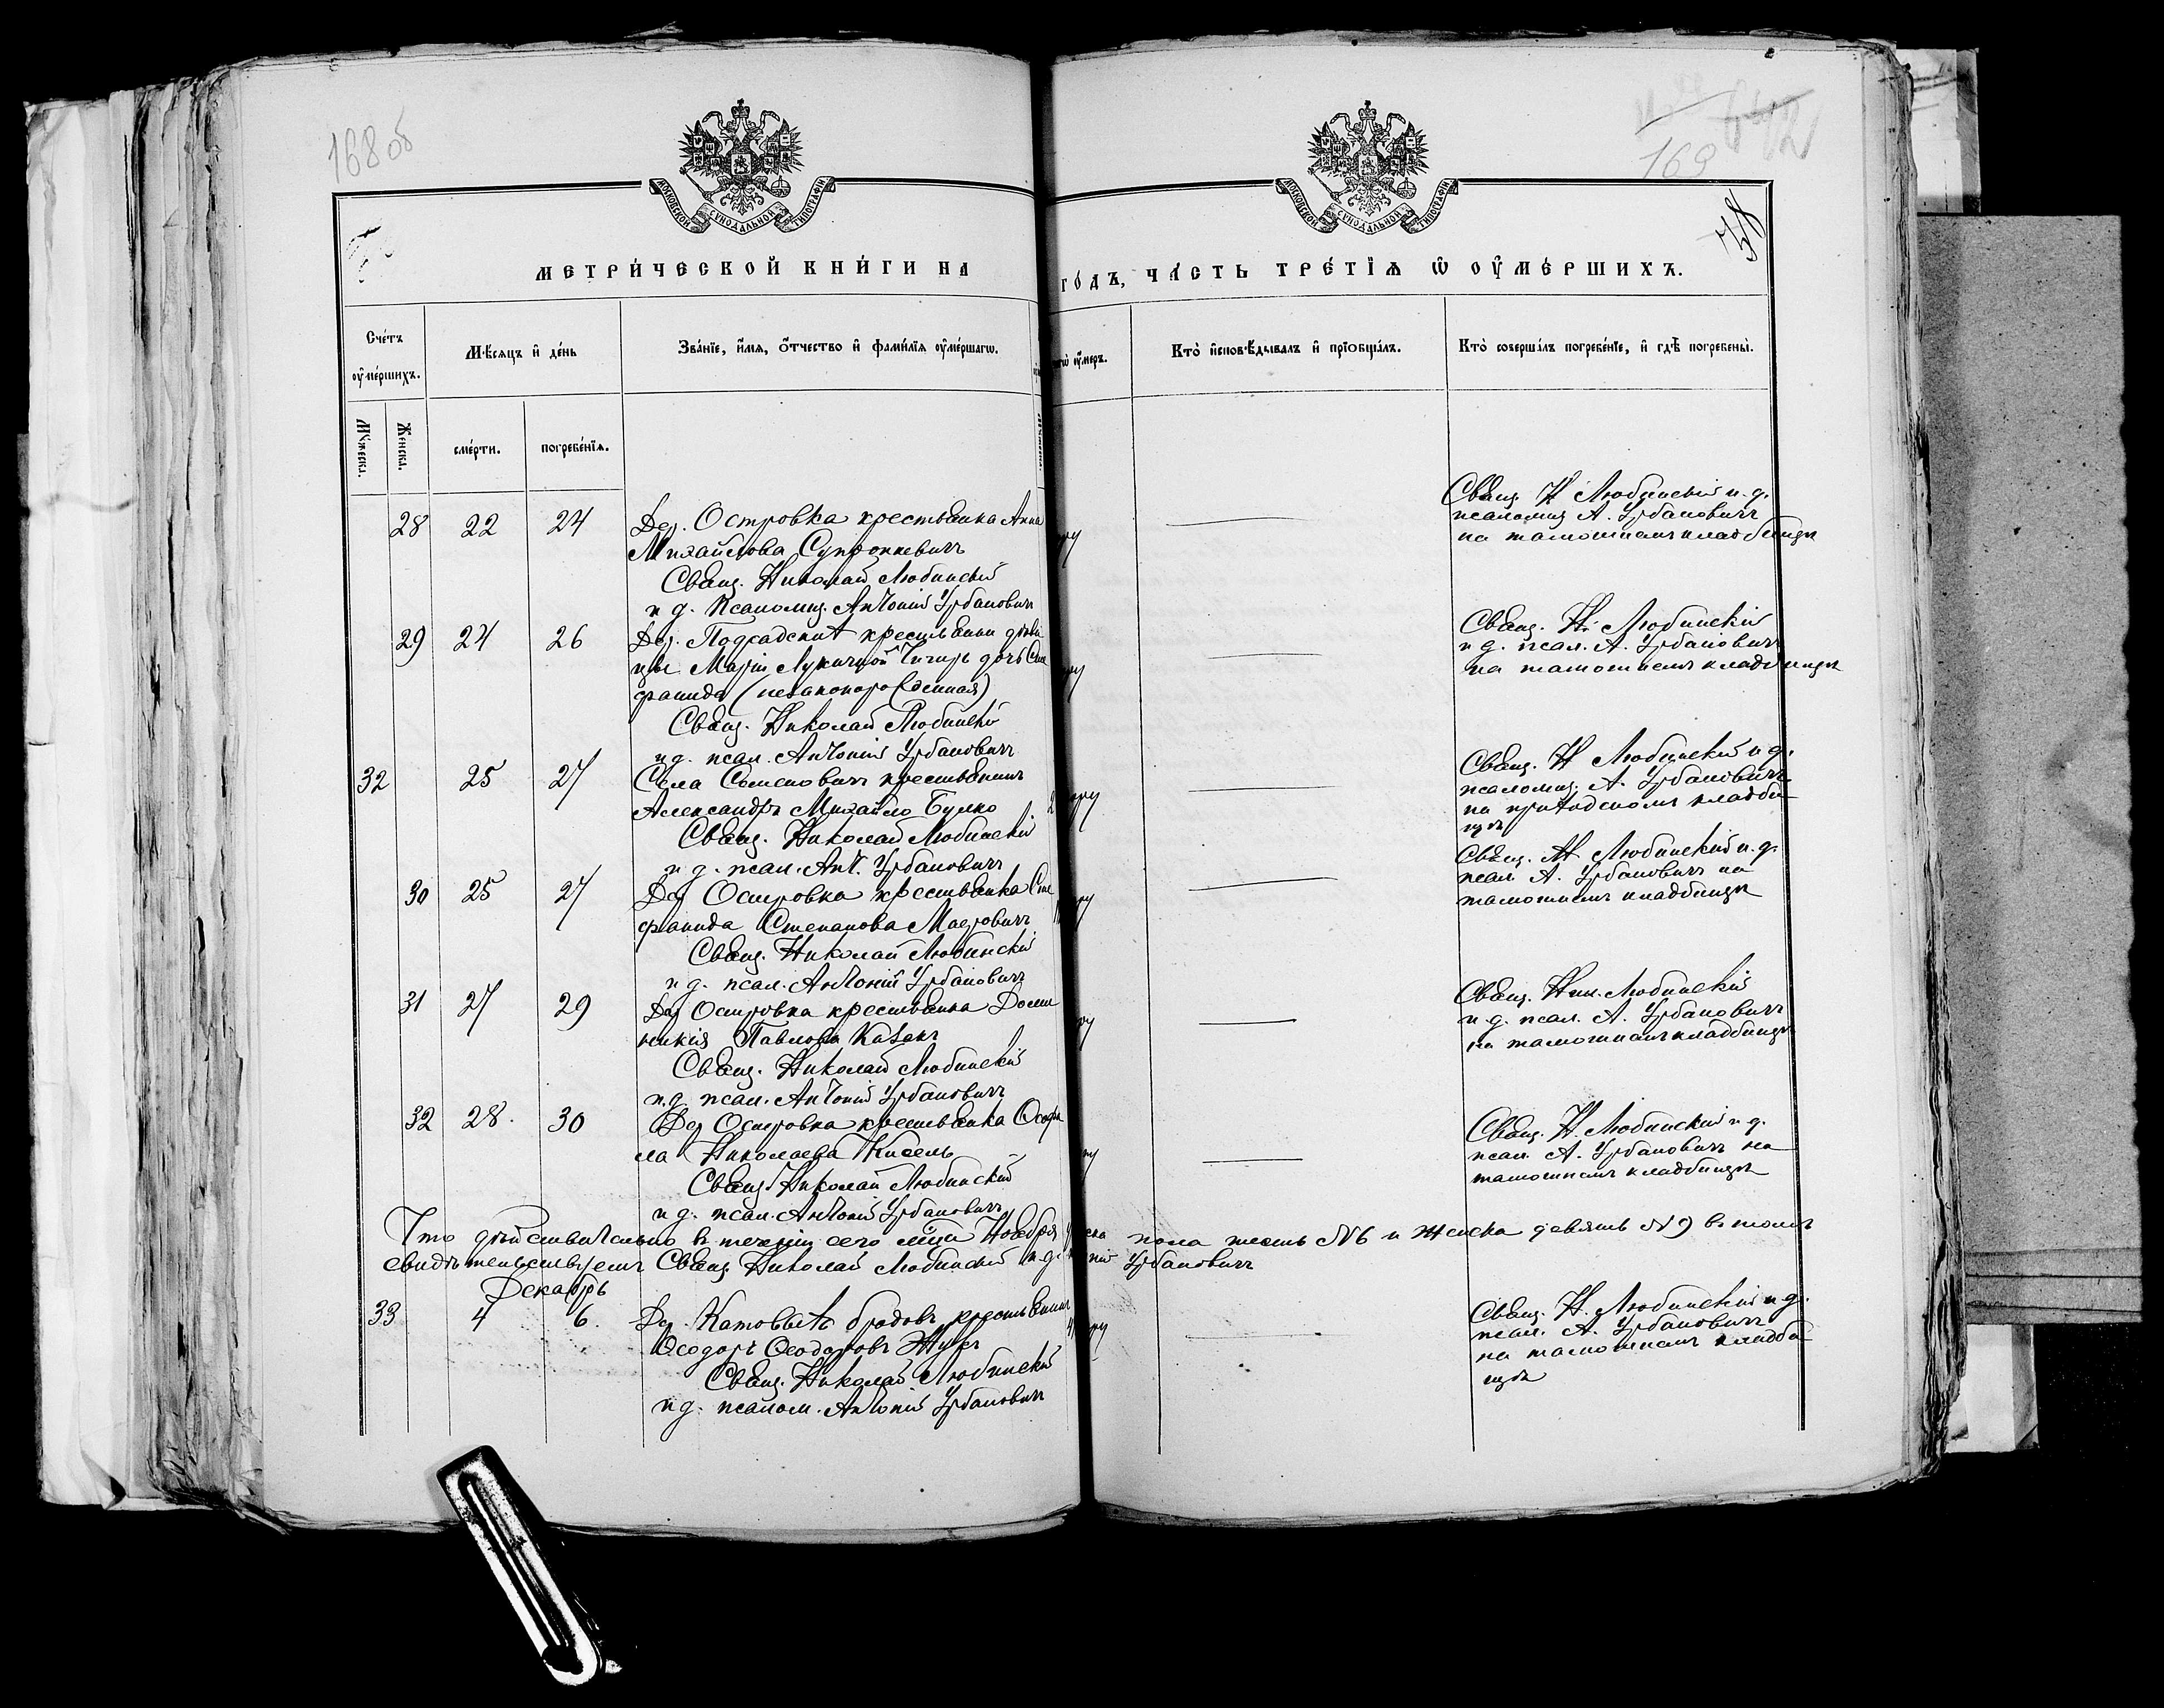 168 об
169
МОСКОВСКОЙ СѴНОДАЛЬНОЙ ТИПОГРАФІИ
МОСКОВСКОЙ СѴНОДАЛЬНОЙ ТИПОГРАФІИ
МЕТРИ́ЧЕСКОЙ КНИ́ГИ НА
ГО́ДЪ, ЧА́СТЬ ТРЕ́ТІѦ Ѡ ОУ҆МЕ́РШИХЪ.
Сче́тъ оу҆ме́ршихъ.
Мѣсѧцъ и҆ де́нь
Зва́нїе, и҆́мѧ, ѻ҆́тчество и҆ фами́лїѧ оу҆ме́ршагѡ.
Кто̀ и҆сповѣ́дывалъ и҆ прїобща́лъ.
Кто̀ соверша́лъ погребе́нїе, и҆ гдѣ̀ погребены̀.
Мꙋжеска.
Женска.
сме́рти.
погребе́нїѧ.
28 22 24 Дер. Островка крестьянка Анна
Михайлова Супронкевичъ
Свящ. Николай Любинскій
и. д. псаломщ. Антоній Урбановичъ
Свящ. Н Любинскій и. д.
псаломщ А. Урбановичъ
на тамошнемъ кладбищѣ
29 24 26 Дер. крестьянки дѣви
цы Маріи Лукичной Чигиръ дочь Сте
фанида (незаконорожденная)
Свящ. Николай Любинскій
и д. псал. Антоній Урбановичъ
Свящ. Н. Любинскій
и д. псал. А. Урбановичъ
на тамошнемъ кладбищѣ
32 25 27 Села крестьянинъ
Александръ Михайло Булко
Свящ. Николай Любинскій
и д. псал. Ант. Урбановичъ
Свящ. Н Любинскій и д.
псаломщ. А. Урбановичъ
на приходскомъ кладби
щѣ
30 25 27 Дер Островка крестьянка Сте
фанида Степанова
Свящ. Николай Любинскій
и д. псал. Антоній Урбановичъ
Свящ. Н Любинскій и. д.
псал А. Урбановичъ на
тамошнемъ кладбищѣ
31 27 29 Дер Островка крестьянка Доми
никія Павлова Казакъ
Свящ. Николай Любинскій
и. д. псал. Антоній Урбановичъ
Свящ. Ник. Любинскій
и. д. псал. А. Урбановичъ
на тамошнемъ кладбищѣ
32 28. 30 Дер Островка крестьянка
Николаева Кисель
Свящ. Николай Любинскій
и д. псал. Антоній Урбановичъ
Свящ. Н. Любинскій и д.
псал. А. Урбановичъ на
тамошнемъ кладбищѣ
Что дѣйствительно въ теченіи сего мѣсяца Ноября пола шесть №6 и женска девять №9 въ томъ
свидѣтельствуемъ Свящ Николай Любинскій и. д. Урбановичъ
Декабрь
33 4 6. Дер. бродовъ крестьянинъ
Ѳеодоръ Ѳеодоровъ Жукъ
Свящ. Николай Любинскій
и д. псалом. Антоній Урбановичъ
Свящ. Н. Любинскій и д.
псал. А. Урбановичъ
на тамошнемъ кладби
щѣ